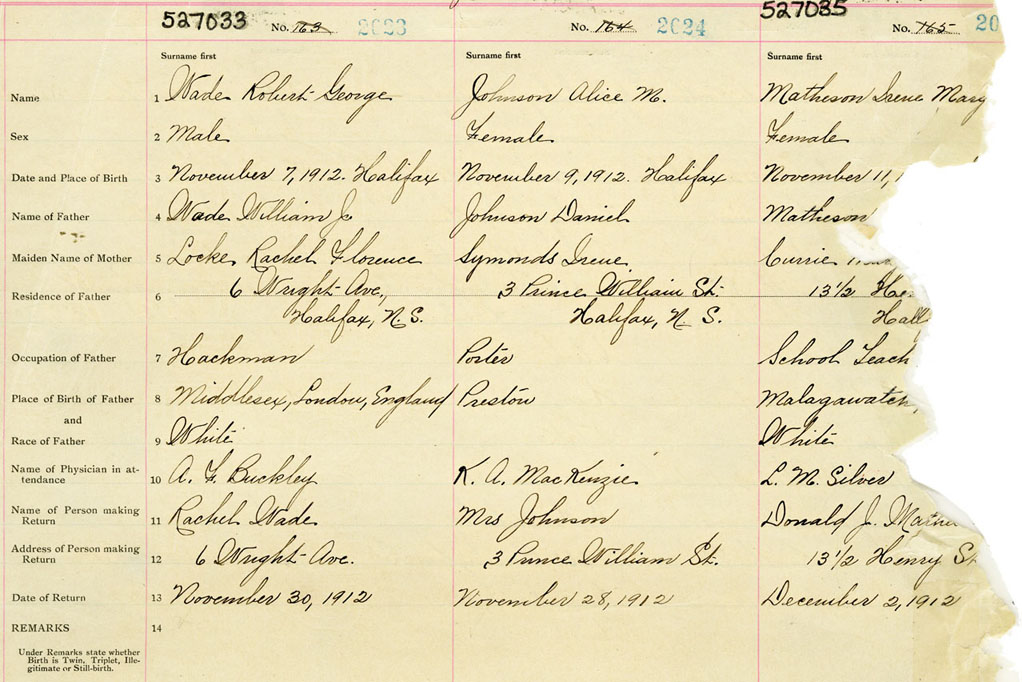 527033 No. 163 2023 No. 164 2024 527035 No. 165 20
Surname first Surname first Surname first
Name 1 Wade Robert George Johnson Alice M. Matheson Irene Mary
Sex 2 Male Female Female
Date and Place of Birth 3 November 7, 1912. Halifax November 9, 1912. Halifax November 11, 1
Name of Father 4 Wade William J. Johnson Daniel Matheson
Maiden Name of Mother 5 Locke Rachel Florence Symonds Irene Currie
Residence of Father 6 6 Wright Ave, 3 Prince William St. 13 1/2 Hen
Halifax, N. S. Halifax, N. S. Hali
Occupation of Father 7 Hackman Porter School Teach
Place of Birth of Father 8 Middlesex, London, England Preston Malagawatch,
and
Race of Father 9 White White
Name of Physician in at-
tendance 10 A. F. Buckley K. A. MacKenzie L. M. Silver
Name of Person making
Return 11 Rachel Wade Mrs Johnson Donald J. Mathe
Address of Person making
Return 12 6 Wright Ave. 3 Prince William St. 13 1/2 Henry St
Date of Return 13 November 30, 1912 November 28, 1912 December 2, 1912
REMARKS 14
Under Remarks state whether
Birth is Twin, Triplet, Ille-
gitimate or Still-birth.